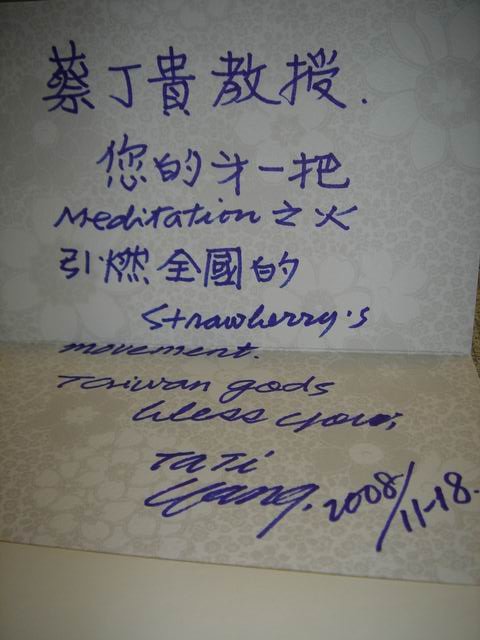 蔡丁貴教授.
您的才一把
Meditation之火
引燃全國的
Strawberry's
movement.
Taiwan gods
bless you;
TaTi
Wang. 2008/11-18.